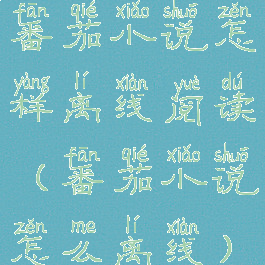 fān qié xiǎo shuō zěn
番茄小说怎
yàng lí xiàn yuè dú
样离线阅读
fān qié xiǎo shuō
（番茄小说
zěn me lí xiàn
怎么离线）